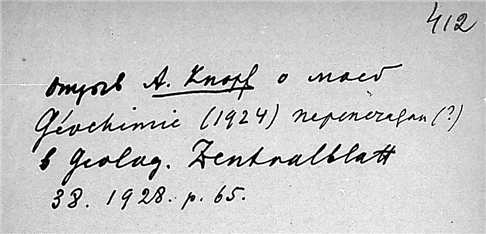 412
отзыв A. Knopf о моей
Géochimie (1924) перепечатан (?)
в Geolog. Zentralblatt
38. 1928. p. 65.